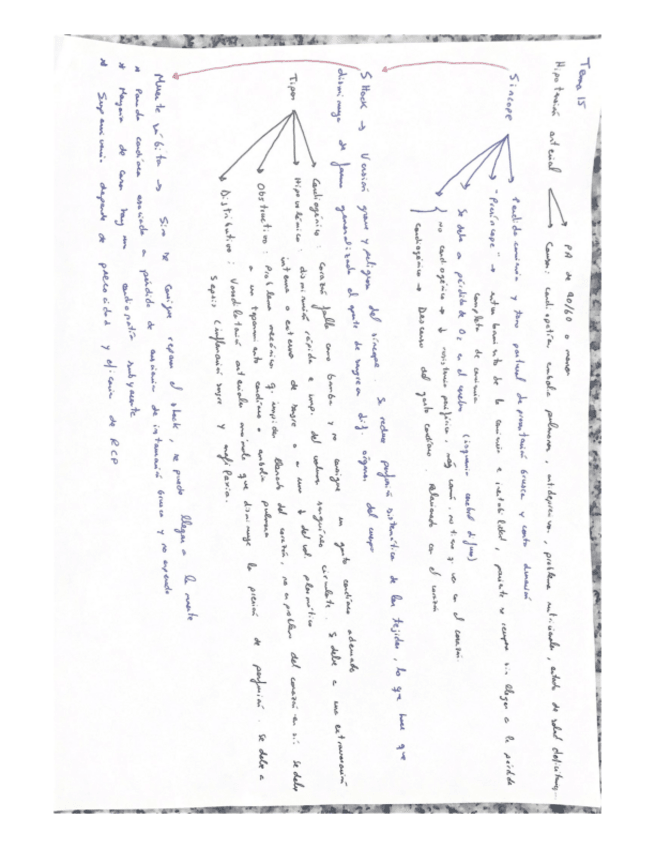 Tema 15
Hipotensión arterial → PA de 90/60 o menor
→ Causas: cardiopatías, embolia pulmonar, antidepresivos, problemas nutricionales, estado de salud
Síncope → Pérdida conciencia y tono postural de presentación brusca y corta duración
→ "Presíncope" → de la conciencia e inestabilidad, paciente no siempre llega a la pérdida
completa de conciencia
→ Se debe a pérdida de O2 en el cerebro (isquemia cerebral difusa)
→ { No cardiogénico → ↓ resistencia periférica, más común, no tiene q. ver con el corazón.
Cardiogénico → Descenso del gasto cardíaco. Relacionado con el corazón
SHock → Versión grave y peligrosa del síncope. Se reduce perfusión sistemática de los tejidos, lo que hace que
disminuye de forma generalizada el aporte de sangre a dif. órganos del cuerpo
Tipos → Cardiogénico: corazón falla como bomba y no consigue un gasto cardíaco adecuado
→ Hipovolémico: disminución rápida e imp. del volumen sanguíneo circulante. Se debe a una extravasación
interna o externa de sangre o a una ↓ del vol. plasmático
→ Obstructivo: Problema mecánico q. impide llenado del corazón, no es problema del corazón en sí. Se debe
a un taponamiento cardíaco o embolia pulmonar
→ Distributivo: Vasodilatación arterial que disminuye la presión de perfusión. Se debe a
sepsis (infección sangre y anafilaxia.
Muerte súbita → Si no se consigue reparar el shock, se puede llegar a la muerte
* Parada cardíaca asociada a pérdida de conciencia de instauración brusca y no esperada
* Mayoría de casos hay una cardiopatía subyacente
* Supervivencia depende de precocidad y eficacia de RCP